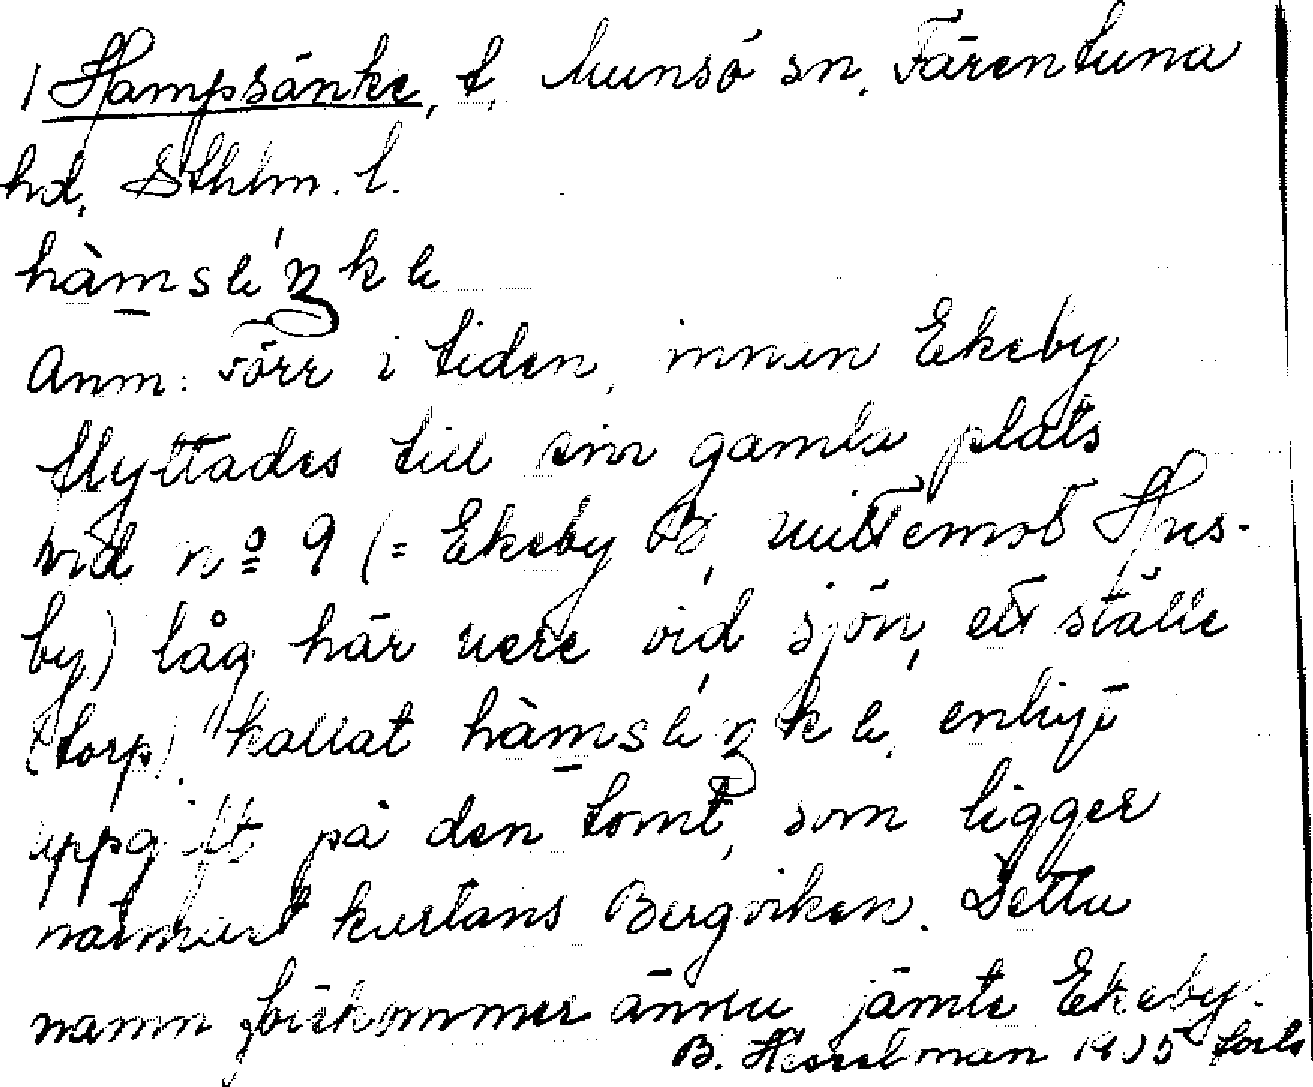 1 Hampsänke, t, Munsö sn. Färentuna
hd, Sthlm. l.
Anm: Förr i tiden, innan Ekeby
flyttades till sin gamla plats
vid nº 9 (= Ekeby B, mittemot Hus-
by) låg här nere vid sjön, ett ställe
(torp), kallat enligt
uppgift på den tomt, som ligger
närmast kartans Bergviken. Detta
namn förekommer ännu jämte Ekeby.
B. Hesselman 1935 forts